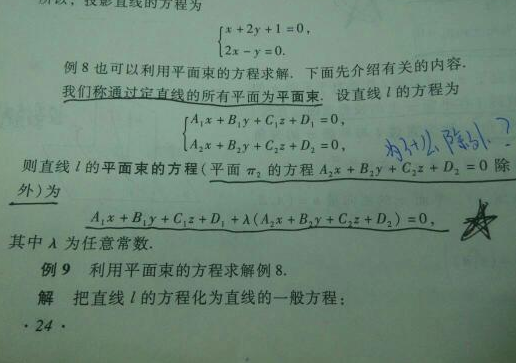 所以，投影直线的方程为
x + 2y + 1 = 0,
2x - y = 0.
例 8 也可以利用平面束的方程求解. 下面先介绍有关的内容.
我们称通过定直线的所有平面为平面束. 设直线 l 的方程为
A₁x + B₁y + C₁z + D₁ = 0,
A₂x + B₂y + C₂z + D₂ = 0,
为什么除外?
则直线 l 的平面束的方程(平面 π₂ 的方程 A₂x + B₂y + C₂z + D₂ = 0 除
外)为
A₁x + B₁y + C₁z + D₁ + λ(A₂x + B₂y + C₂z + D₂) = 0,
其中 λ 为任意常数.
例 9 利用平面束的方程求解例 8.
解 把直线 l 的方程化为直线的一般方程:
· 24 ·